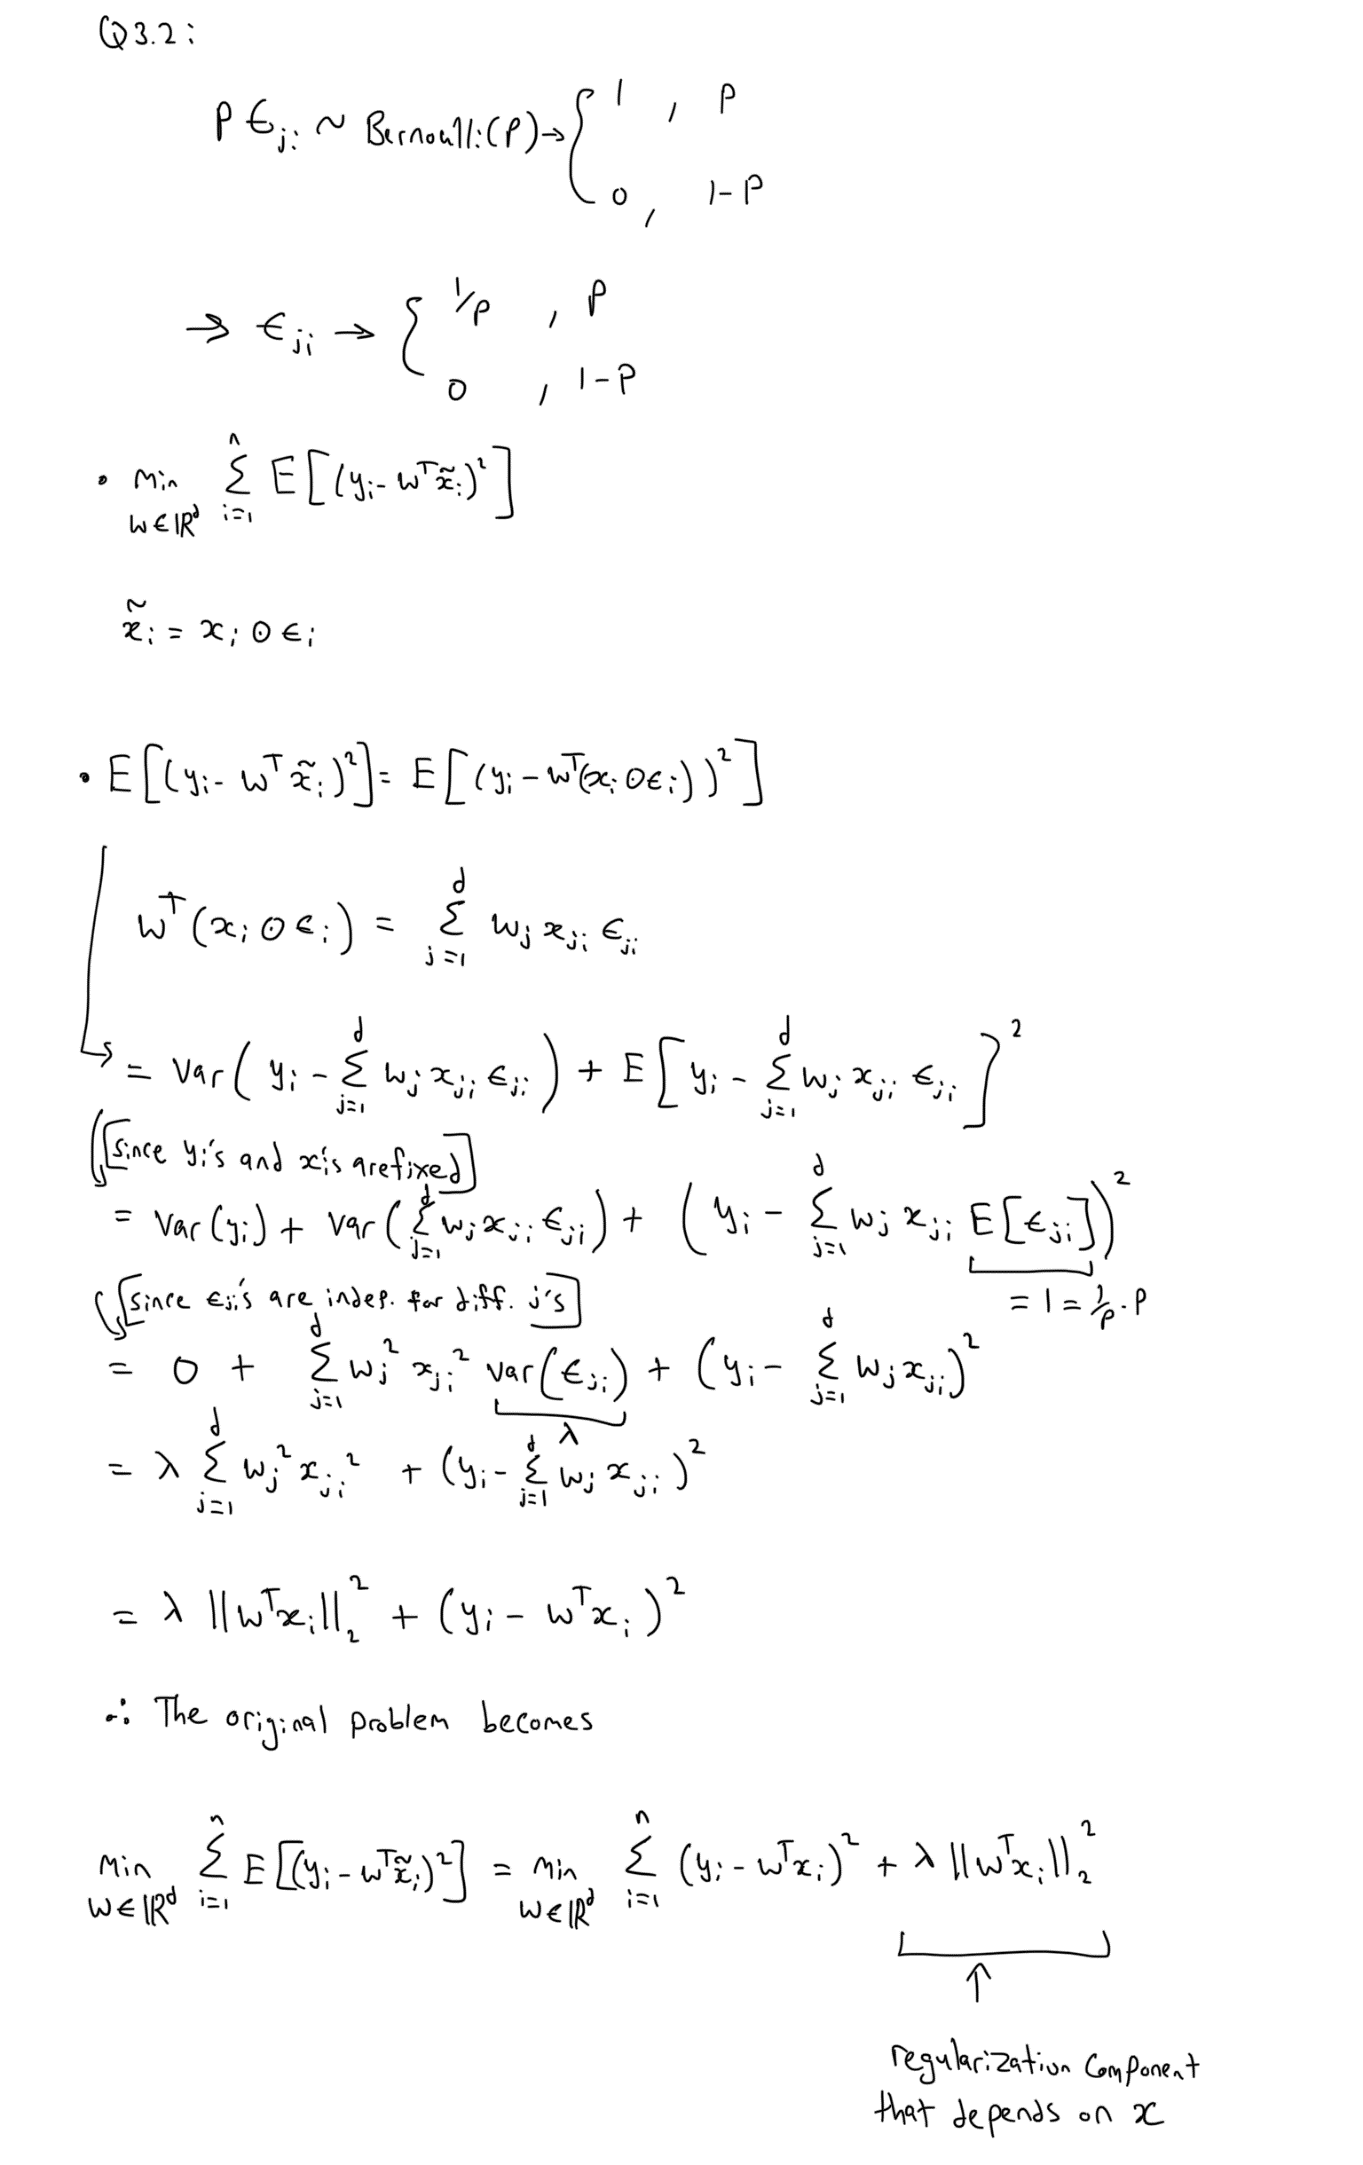 Q3.2:
p ϵ_{ji} ~ Bernoulli(p) → { 1 , p
0 , 1-p
⇒ ϵ_{ji} → { 1/p , p
0 , 1-p
• min_{w∈ℝ^d} Σ_{i=1}^{n} E[(y_i - w^T x̃_i)^2]
x̃_i = x_i ⊙ ϵ_i
• E[(y_i - w^T x̃_i)^2] = E[(y_i - w^T(x_i ⊙ ϵ_i))^2]
w^T(x_i ⊙ ϵ_i) = Σ_{j=1}^{d} w_j x_{ji} ϵ_{ji}
↳ = Var(y_i - Σ_{j=1}^{d} w_j x_{ji} ϵ_{ji}) + E[y_i - Σ_{j=1}^{d} w_j x_{ji} ϵ_{ji}]^2
[since y_i's and x_i's are fixed]
= Var(y_i) + Var(Σ_{j=1}^{d} w_j x_{ji} ϵ_{ji}) + (y_i - Σ_{j=1}^{d} w_j x_{ji} E[ϵ_{ji}])^2
= 1 = 1/p · p
[since ϵ_{ji}'s are indep. for diff. j's]
= 0 + Σ_{j=1}^{d} w_j^2 x_{ji}^2 Var(ϵ_{ji}) + (y_i - Σ_{j=1}^{d} w_j x_{ji})^2
λ
= λ Σ_{j=1}^{d} w_j^2 x_{ji}^2 + (y_i - Σ_{j=1}^{d} w_j x_{ji})^2
= λ ||w^T x_i||_2^2 + (y_i - w^T x_i)^2
∴ The original problem becomes
min_{w∈ℝ^d} Σ_{i=1}^{n} E[(y_i - w^T x̃_i)^2] = min_{w∈ℝ^d} Σ_{i=1}^{n} (y_i - w^T x_i)^2 + λ ||w^T x_i||_2^2
↑
regularization component
that depends on x